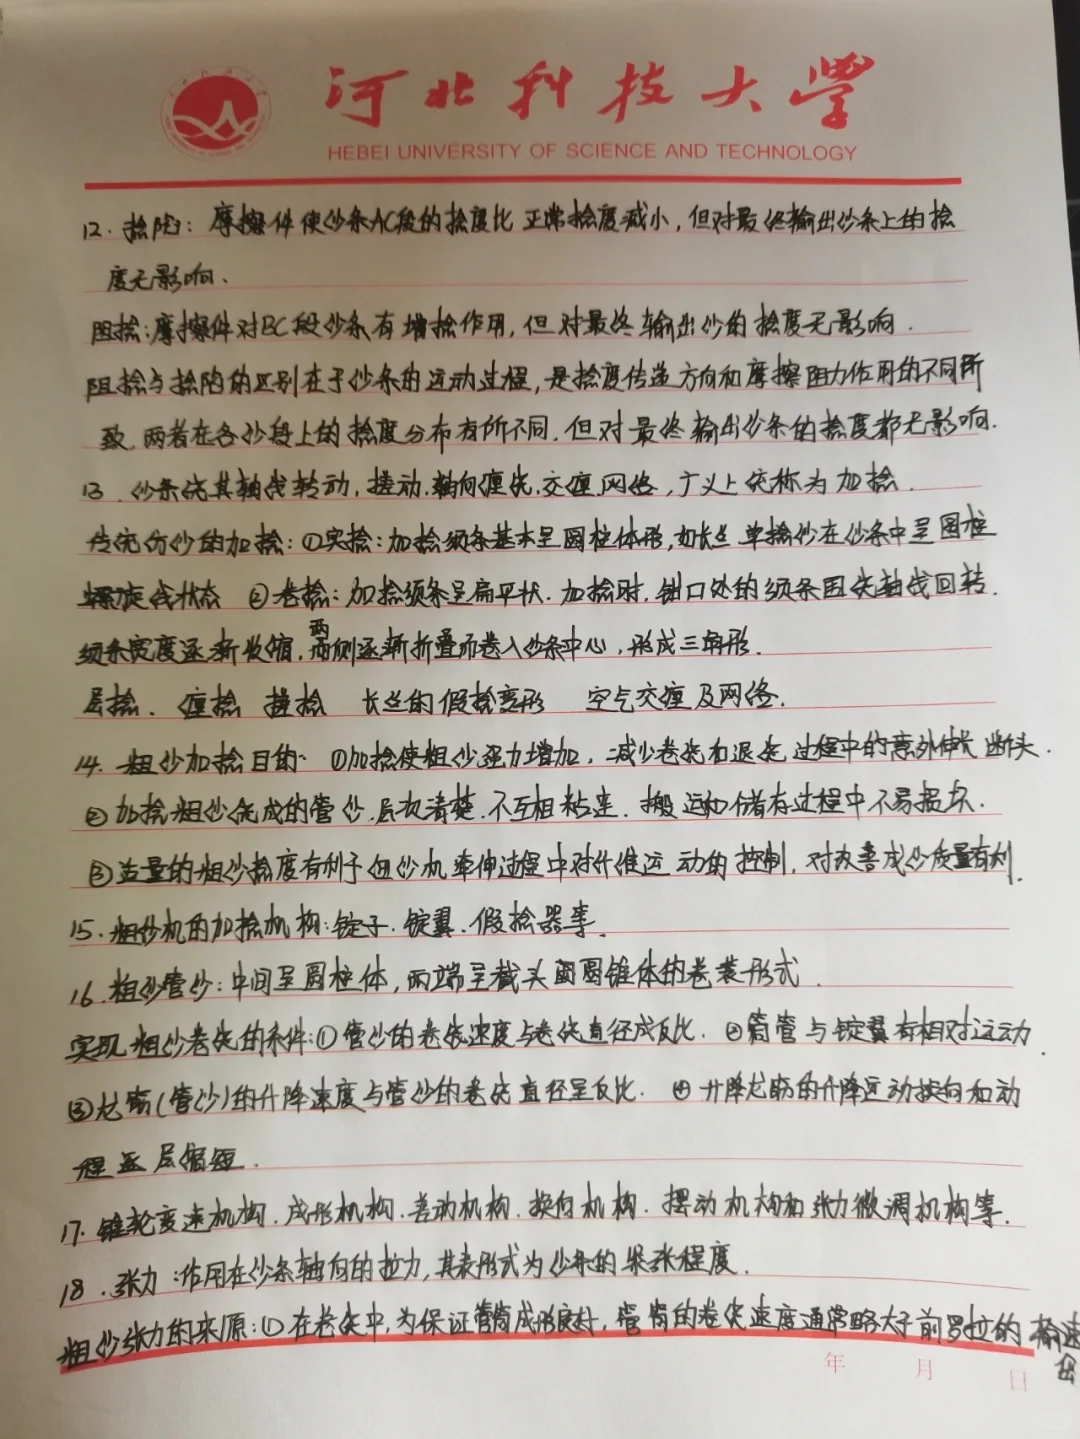 河北科技大学
HEBEI UNIVERSITY OF SCIENCE AND TECHNOLOGY
12. 捻陷：摩擦件使纱条AC段的捻度比正常捻度减小，但对最终输出纱条上的捻
度无影响、
阻捻：摩擦件对BC段纱条有增捻作用，但对最终输出纱的捻度无影响.
阻捻与捻陷的区别在于纱条的运动过程，是捻度传递方向和摩擦阻力作用的不同所
致，两者在各纱段上的捻度分布有所不同，但对最终输出纱条的捻度都无影响.
13. 纱条绕其轴线转动，搓动.轴向缠绕.交缠.网络，广义上统称为加捻.
传统纺纱的加捻：①实捻：加捻须条基本呈圆柱体形，如长丝单捻纱在纱条中呈圆柱
螺旋线状态 ②卷捻：加捻须条呈扁平状.加捻时，钳口处的须条围绕轴线回转.
须条宽度逐渐收缩，两侧逐渐折叠而卷入纱条中心，形成三角形.
层捻. 缠捻 搓捻 长丝的假捻变形 空气交缠及网络.
14. 粗纱加捻目的 ①加捻使粗纱强力增加，减少卷绕和退绕过程中的意外伸长断头.
②加捻粗纱绕成的管纱，层次清楚.不互相粘连.搬运和储存过程中不易损坏.
③适量的粗纱捻度有利于细纱机牵伸过程中对纤维运动的控制，对改善成纱质量有利.
15. 粗纱机的加捻机构：锭子.锭翼.假捻器等.
16. 粗纱管纱：中间呈圆柱体，两端呈截头圆锥体的卷装形式.
实现粗纱卷绕的条件：①管纱的卷绕速度与卷绕直径成反比. ②筒管与锭翼有相对运动.
③龙筋(管纱)的升降速度与管纱的卷绕直径呈反比. ④升降龙筋的升降运动换向和动
程逐层缩短.
17. 锥轮变速机构.成形机构.差动机构.换向机构.摆动机构和张力微调机构等.
18. 张力：作用在纱条轴向的拉力，其表形式为纱条的紧张程度.
粗纱张力的来源：①在卷绕中，为保证管筒成形良好，管筒的卷绕速度通常略大于前罗拉的输出速
年 月 日